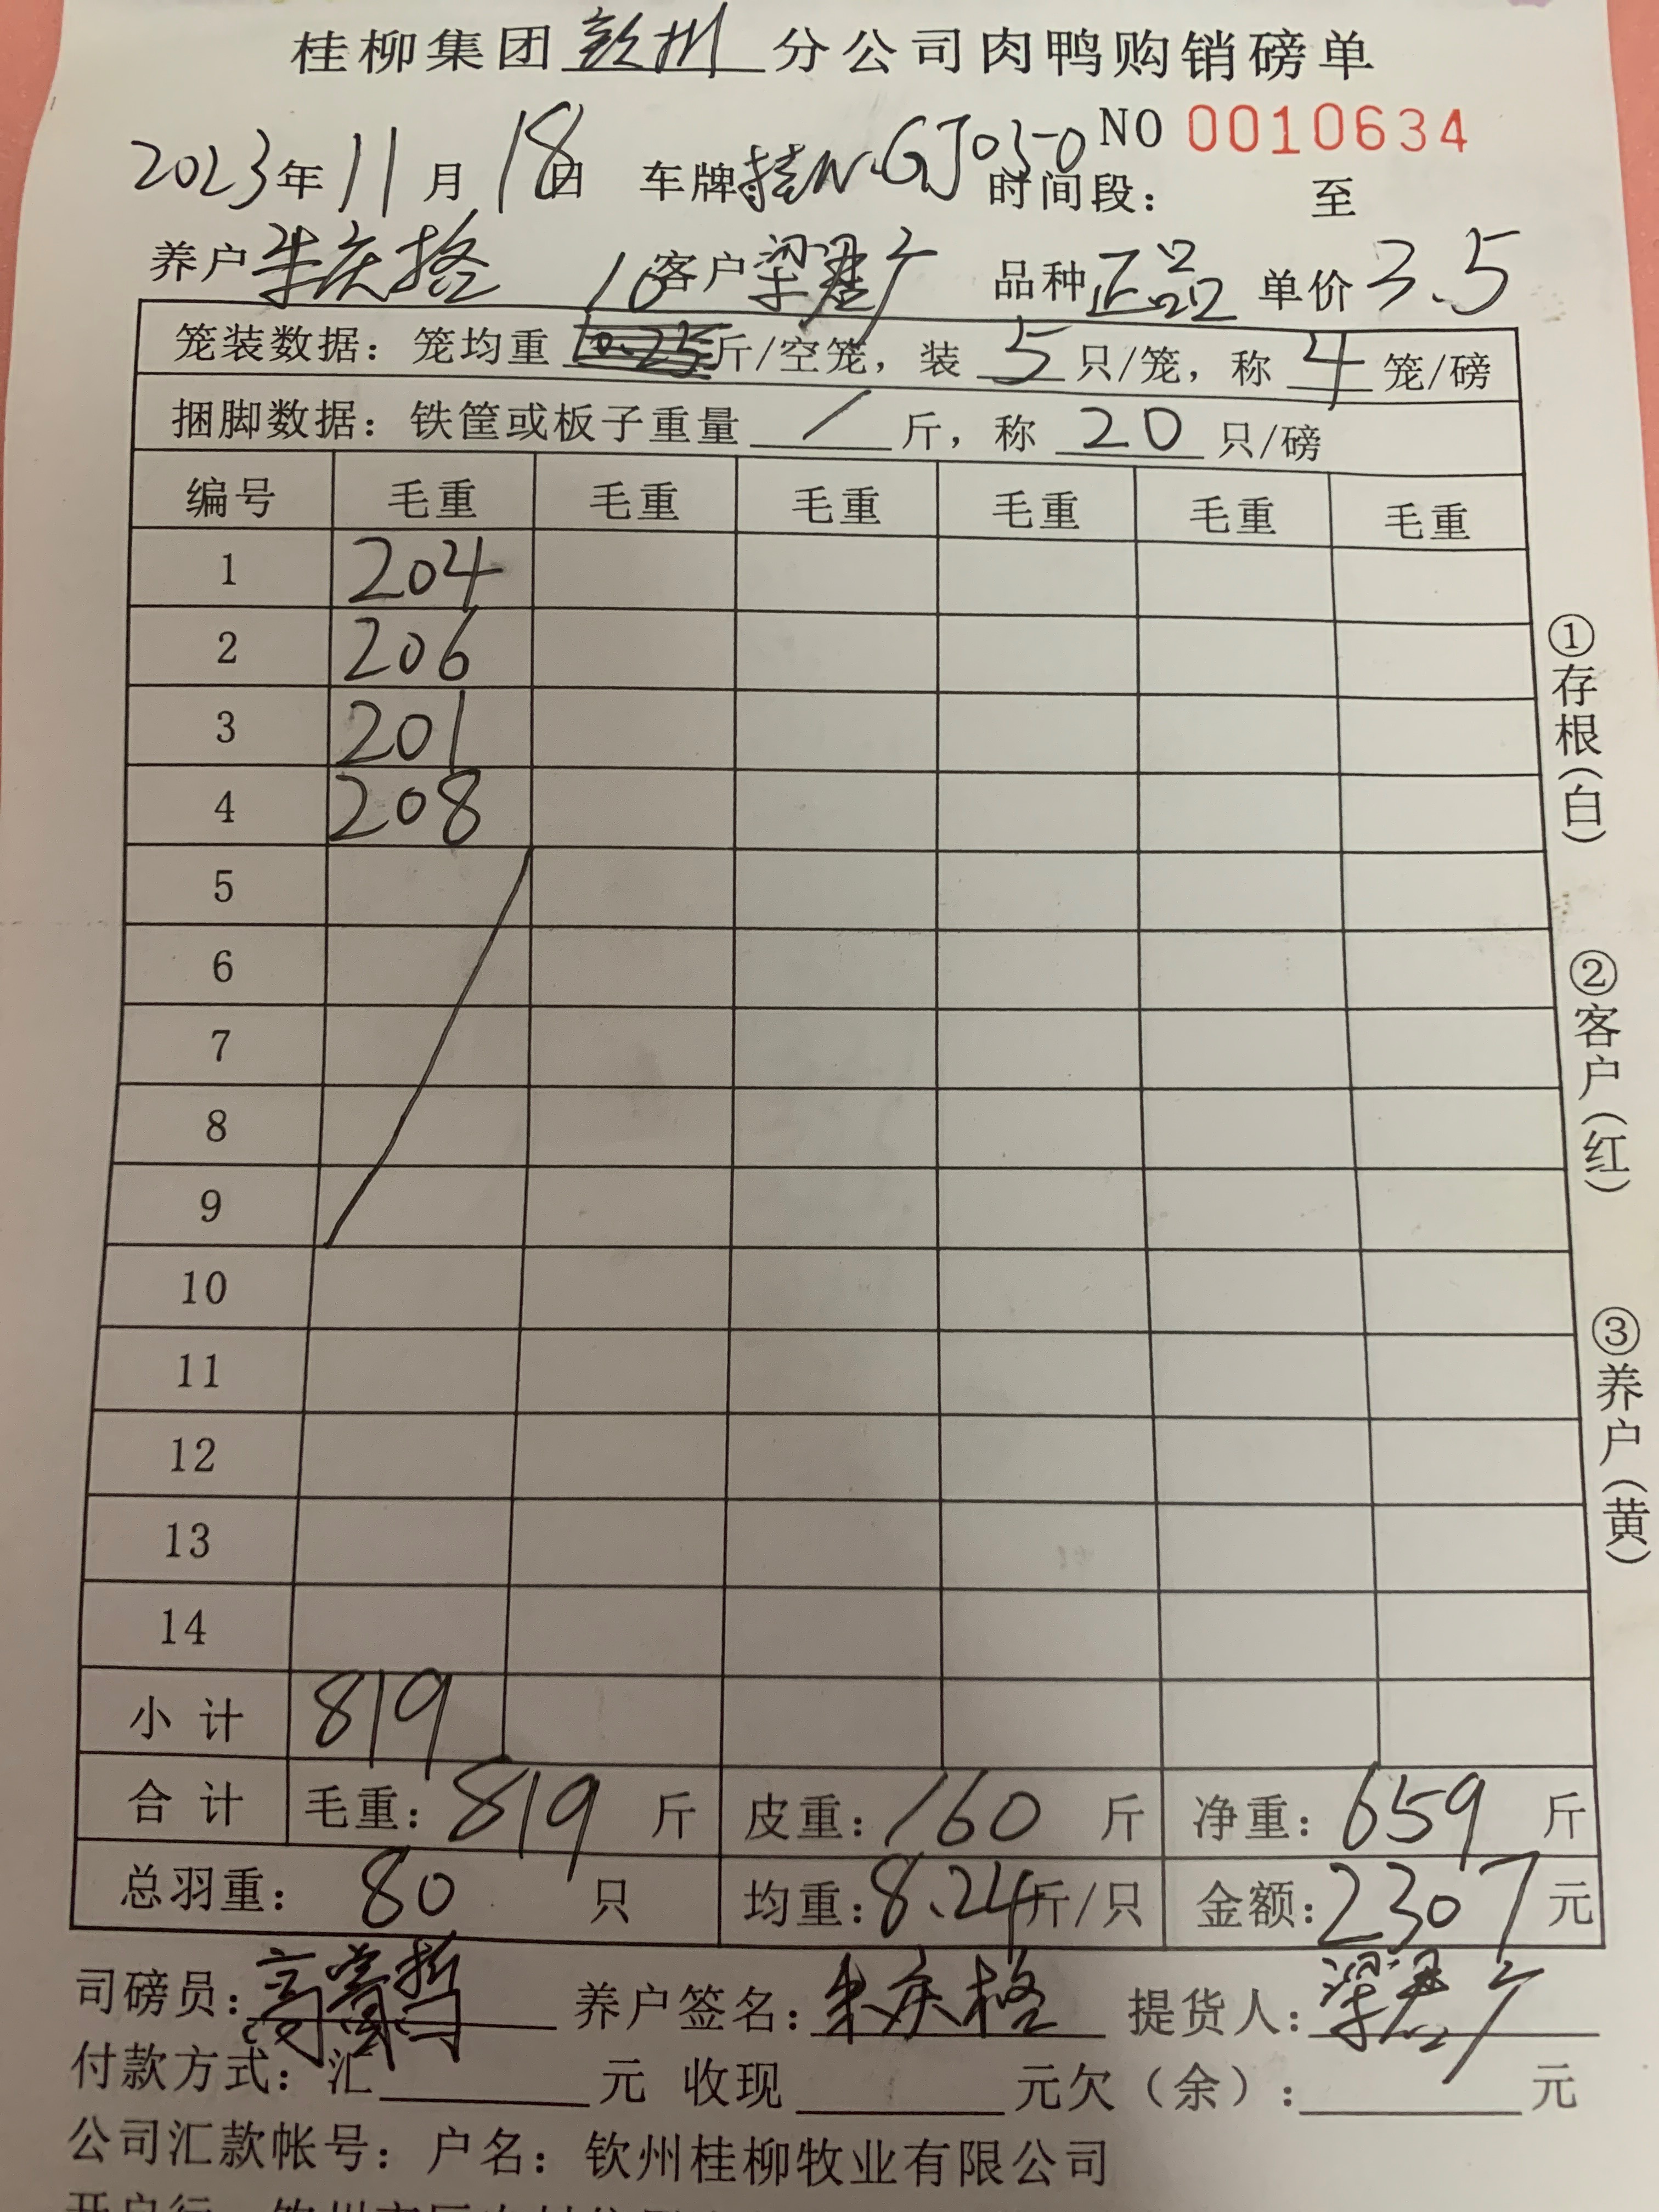 桂柳集团钦州分公司肉鸭购销磅单
NO 0010634
2023年11月18日 车牌桂N·GJ050 时间段: 至
养户朱庆格 客户梁君广 品种正品 单价3.5
10
笼装数据:笼均重 10.25 斤/空笼,装 5 只/笼,称 4 笼/磅
捆脚数据:铁筐或板子重量 / 斤,称 20 只/磅
编号 毛重 毛重 毛重 毛重 毛重 毛重
1 204
2 206
3 201
4 208
5
6
7
8
9
10
11
12
13
14
小计 819
合计 毛重:819 斤 皮重:160 斤 净重:659 斤
总羽重: 80 只 均重:8.24斤/只 金额:2307元
司磅员: 养户签名:朱庆格 提货人:梁君广
付款方式:汇 元 收现 元欠(余): 元
公司汇款帐号:户名:钦州桂柳牧业有限公司
①存根(白)
②客户(红)
③养户(黄)